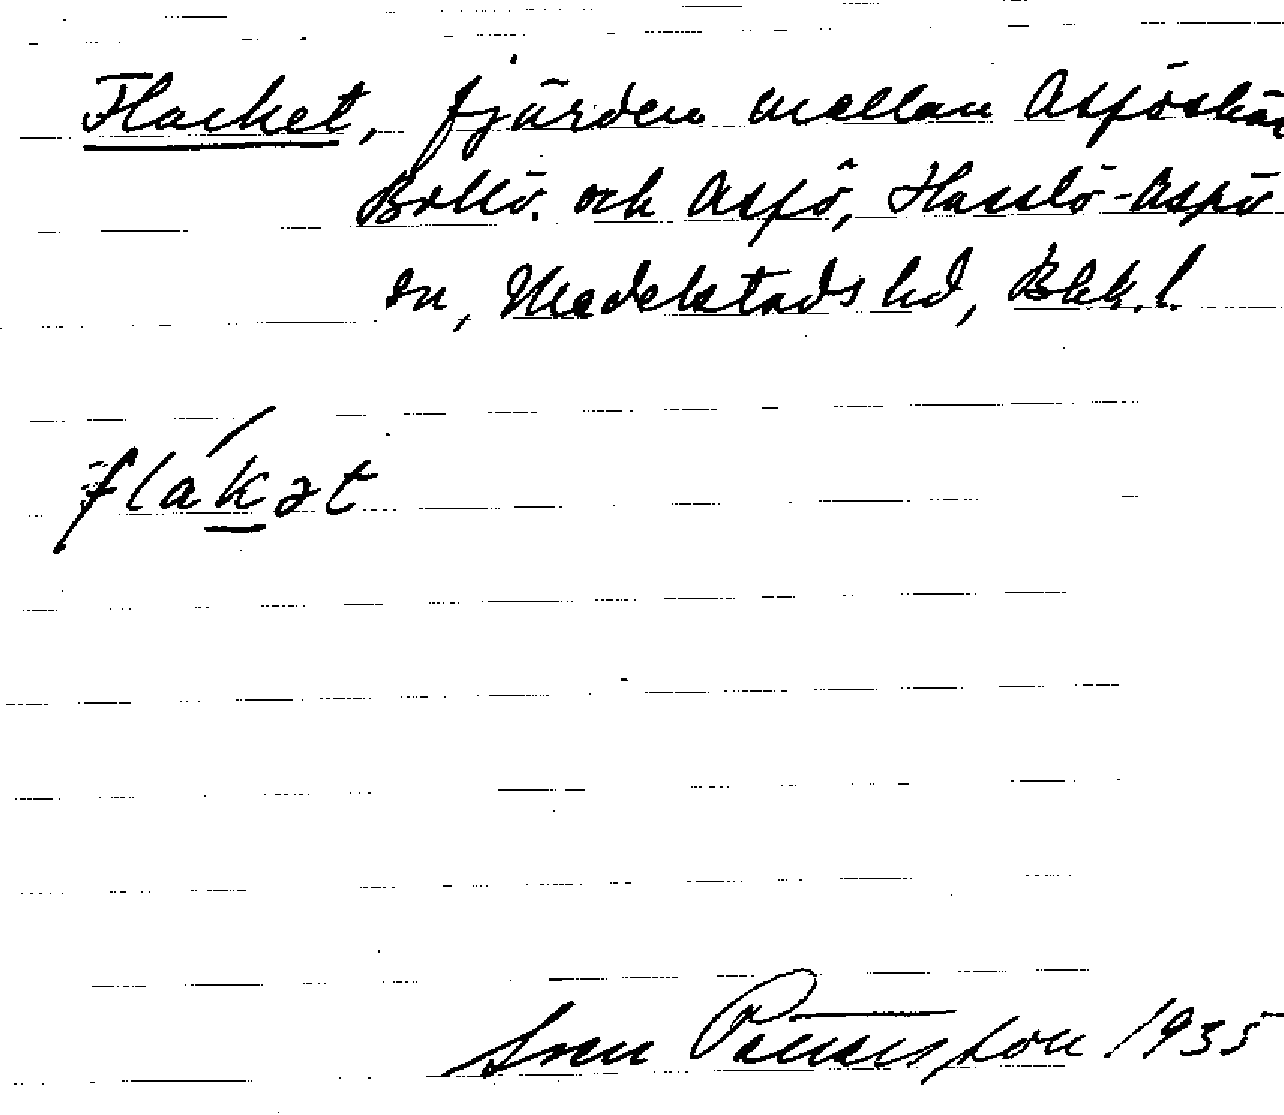 Flacket, fjärden mellan Aspöskär
Bollö. och Aspö, Hasslö-Aspö
sn, Medelstads hd, Blek. l.
flákət
Sven Petersson 1935